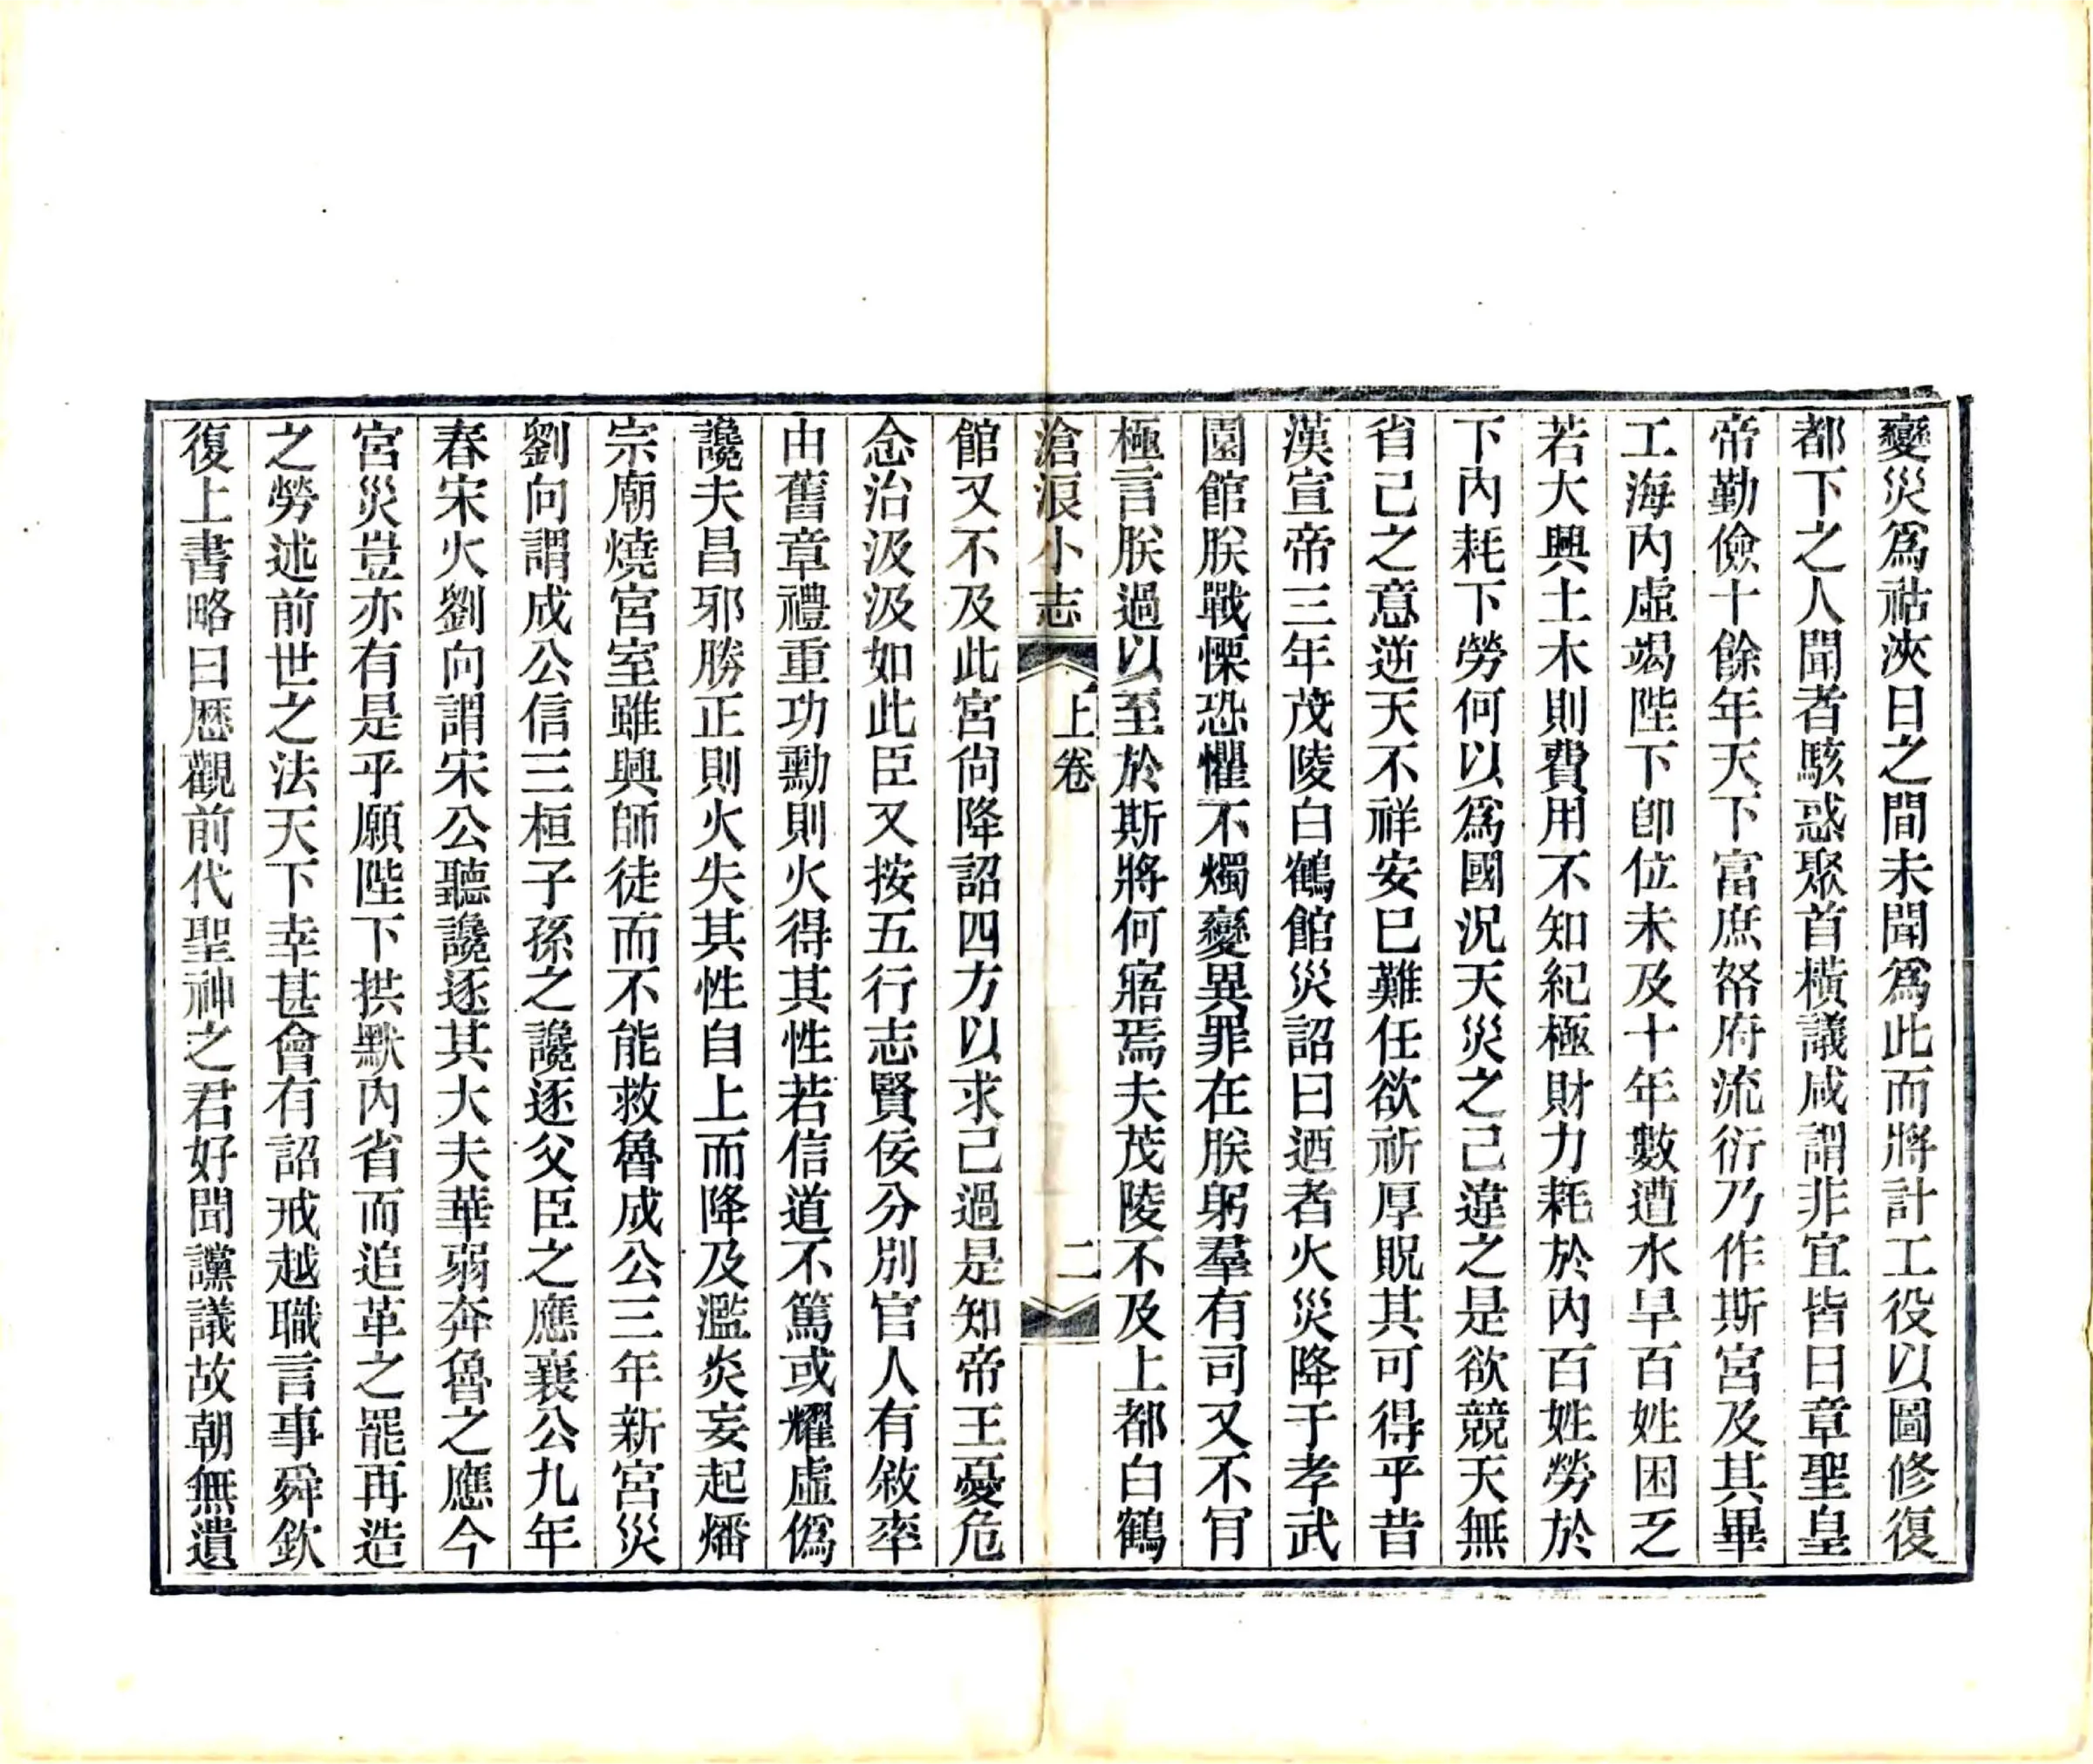 變災爲祜浹日之間未聞爲此而將計工役以圖修復
都下之人聞者駭惑聚首橫議咸謂非宜皆曰章聖皇
帝勤儉十餘年天下富庶帑府流衍乃作斯宮及其畢
工海內虛竭陛下卽位未及十年數遭水旱百姓困乏
若大興土木則費用不知紀極財力耗於內百姓勞於
下內耗下勞何以爲國況天災之己違之是欲競天無
省己之意逆天不祥安巳難任欲祈厚貺其可得乎昔
漢宣帝三年茂陵白鶴館災詔曰迺者火災降于孝武
園館朕戰慄恐懼不燭變異罪在朕躬羣有司又不肎
極言朕過以至於斯將何寤焉夫茂陵不及上都白鶴
滄浪小志
上卷
二
館又不及此宮尙降詔四方以求己過是知帝王憂危
念治汲汲如此臣又按五行志賢佞分別官人有敘率
由舊章禮重功勳則火得其性若信道不篤或耀虛僞
讒夫昌邪勝正則火失其性自上而降及濫炎妄起燔
宗廟燒宮室雖興師徒而不能救魯成公三年新宮災
劉向謂成公信三桓子孫之讒逐父臣之應襄公九年
春宋火劉向謂宋公聽讒逐其大夫華弱奔魯之應今
宮災豈亦有是乎願陛下拱默內省而追革之罷再造
之勞述前世之法天下幸甚會有詔戒越職言事舜欽
復上書略曰歷觀前代聖神之君好聞讜議故朝無遺